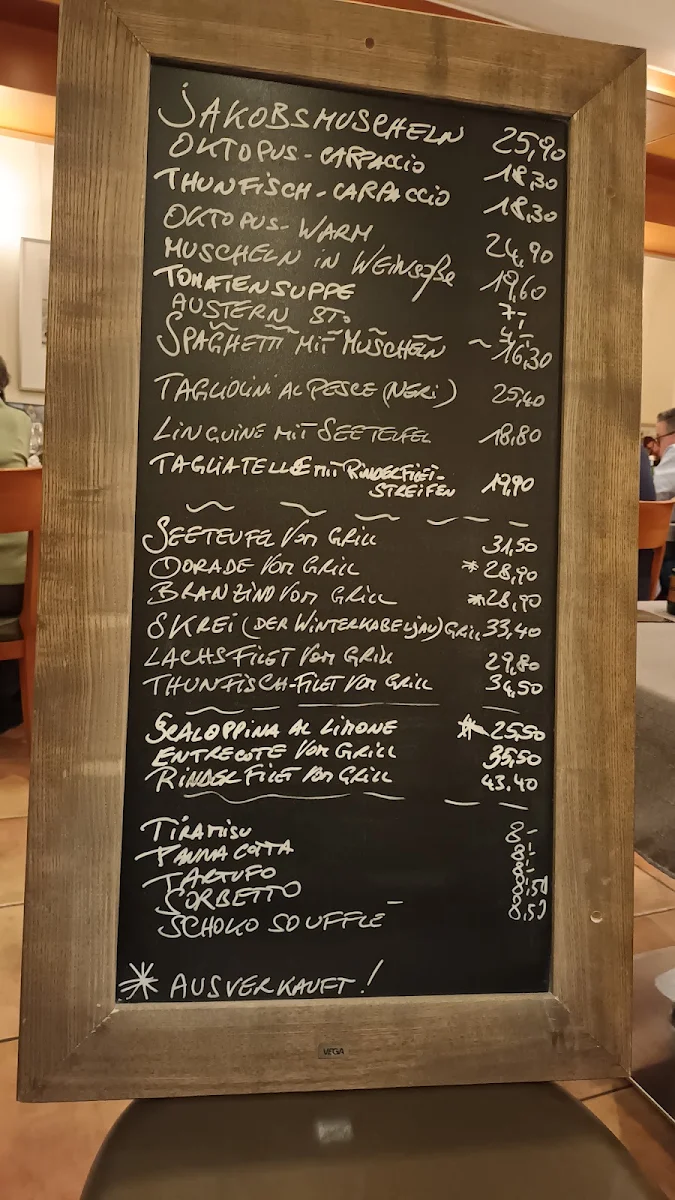 JAKOBSMUSCHELN 25,90
OKTOPUS-CARPACCIO 18,30
THUNFISCH-CARPACCIO 18,30
OKTOPUS-WARM 24,90
MUSCHELN IN WEINSOßE 19,60
TOMATENSUPPE 7,-
AUSTERN ST. 4,-
SPAGHETTI MIT MUSCHELN ~16,30
TAGLIOLINI AL PESCE (NERI) 25,40
LINGUINE MIT SEETEUFEL 18,80
TAGLIATELLE MIT RINDERFILET-
STREIFEN 19,90
SEETEUFEL VOM GRILL 31,50
DORADE VOM GRILL *28,90
BRANZINO VOM GRILL *28,90
SKREI (DER WINTERKABELJAU) GRILL 33,40
LACHSFILET VOM GRILL 29,80
THUNFISCH-FILET VOM GRILL 34,50
SCALOPPINA AL LIMONE * 25,50
ENTRECOTE VOM GRILL 35,50
RINDERFILET VOM GRILL 43,40
TIRAMISU 8-
PANNA COTTA 8,-
TARTUFO 8,-
SORBETTO 8,50
SCHOKO SOUFFLE 8,50
* AUSVERKAUFT!
VEGA